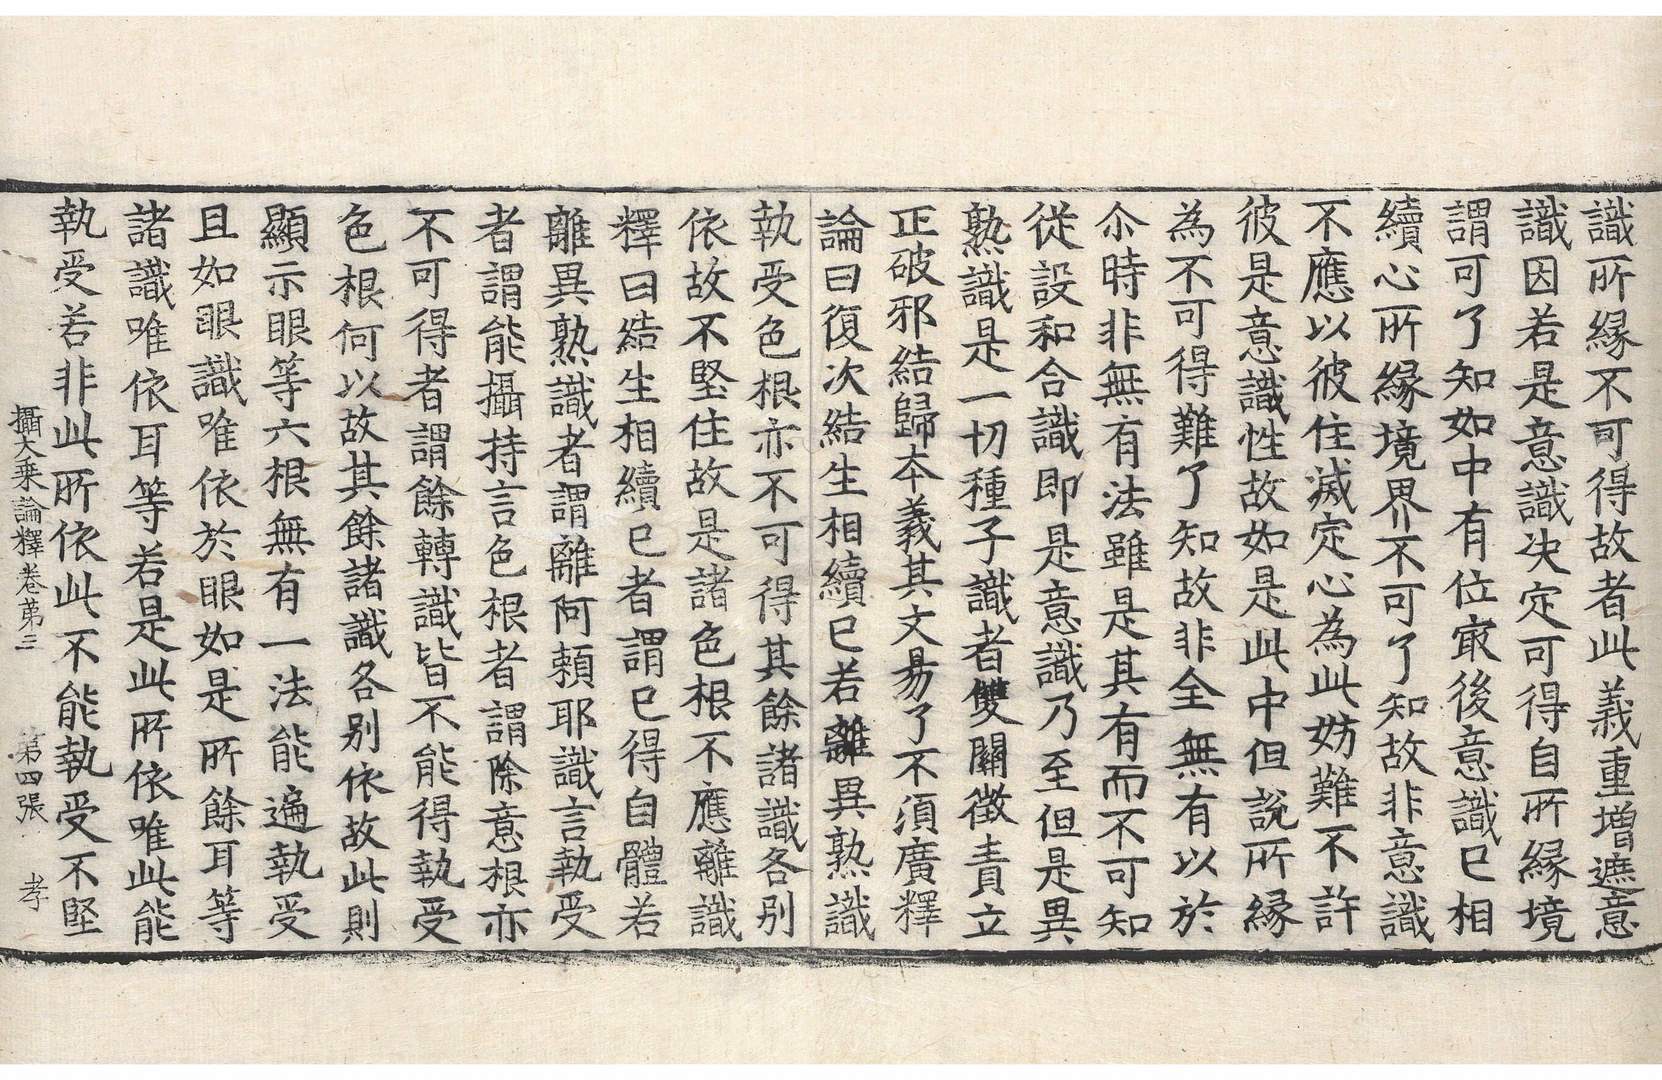 識所縁不可得故者此義重增遮意
識因若是意識决定可得自所縁境
謂可了知如中有位㝡後意識已相
續心所縁境界不可了知故非意識
不應以彼住滅定心為此妨難不許
彼是意識性故如是此中但說所縁
為不可得難了知故非全無有以於
尒時非無有法雖是其有而不可知
従設和合識即是意識乃至但是異
熟識是一切種子識者雙關徵責立
正破邪結歸本義其文易了不須廣釋
論曰復次結生相續已若離異熟識
執受色根亦不可得其餘諸識各別
依故不堅住故是諸色根不應離識
釋曰結生相續已者謂已得自體若
離異熟識者謂離阿頼耶識言執受
者謂能攝持言色根者謂除意根亦
不可得者謂餘轉識皆不能得執受
色根何以故其餘諸識各別依故此則
顯示眼等六根無有一法能遍執受
且如眼識唯依於眼如是所餘耳等
諸識唯依耳等若是此所依唯此能
執受若非此所依此不能執受不堅
攝大乘論釋卷第三 第四張 孝